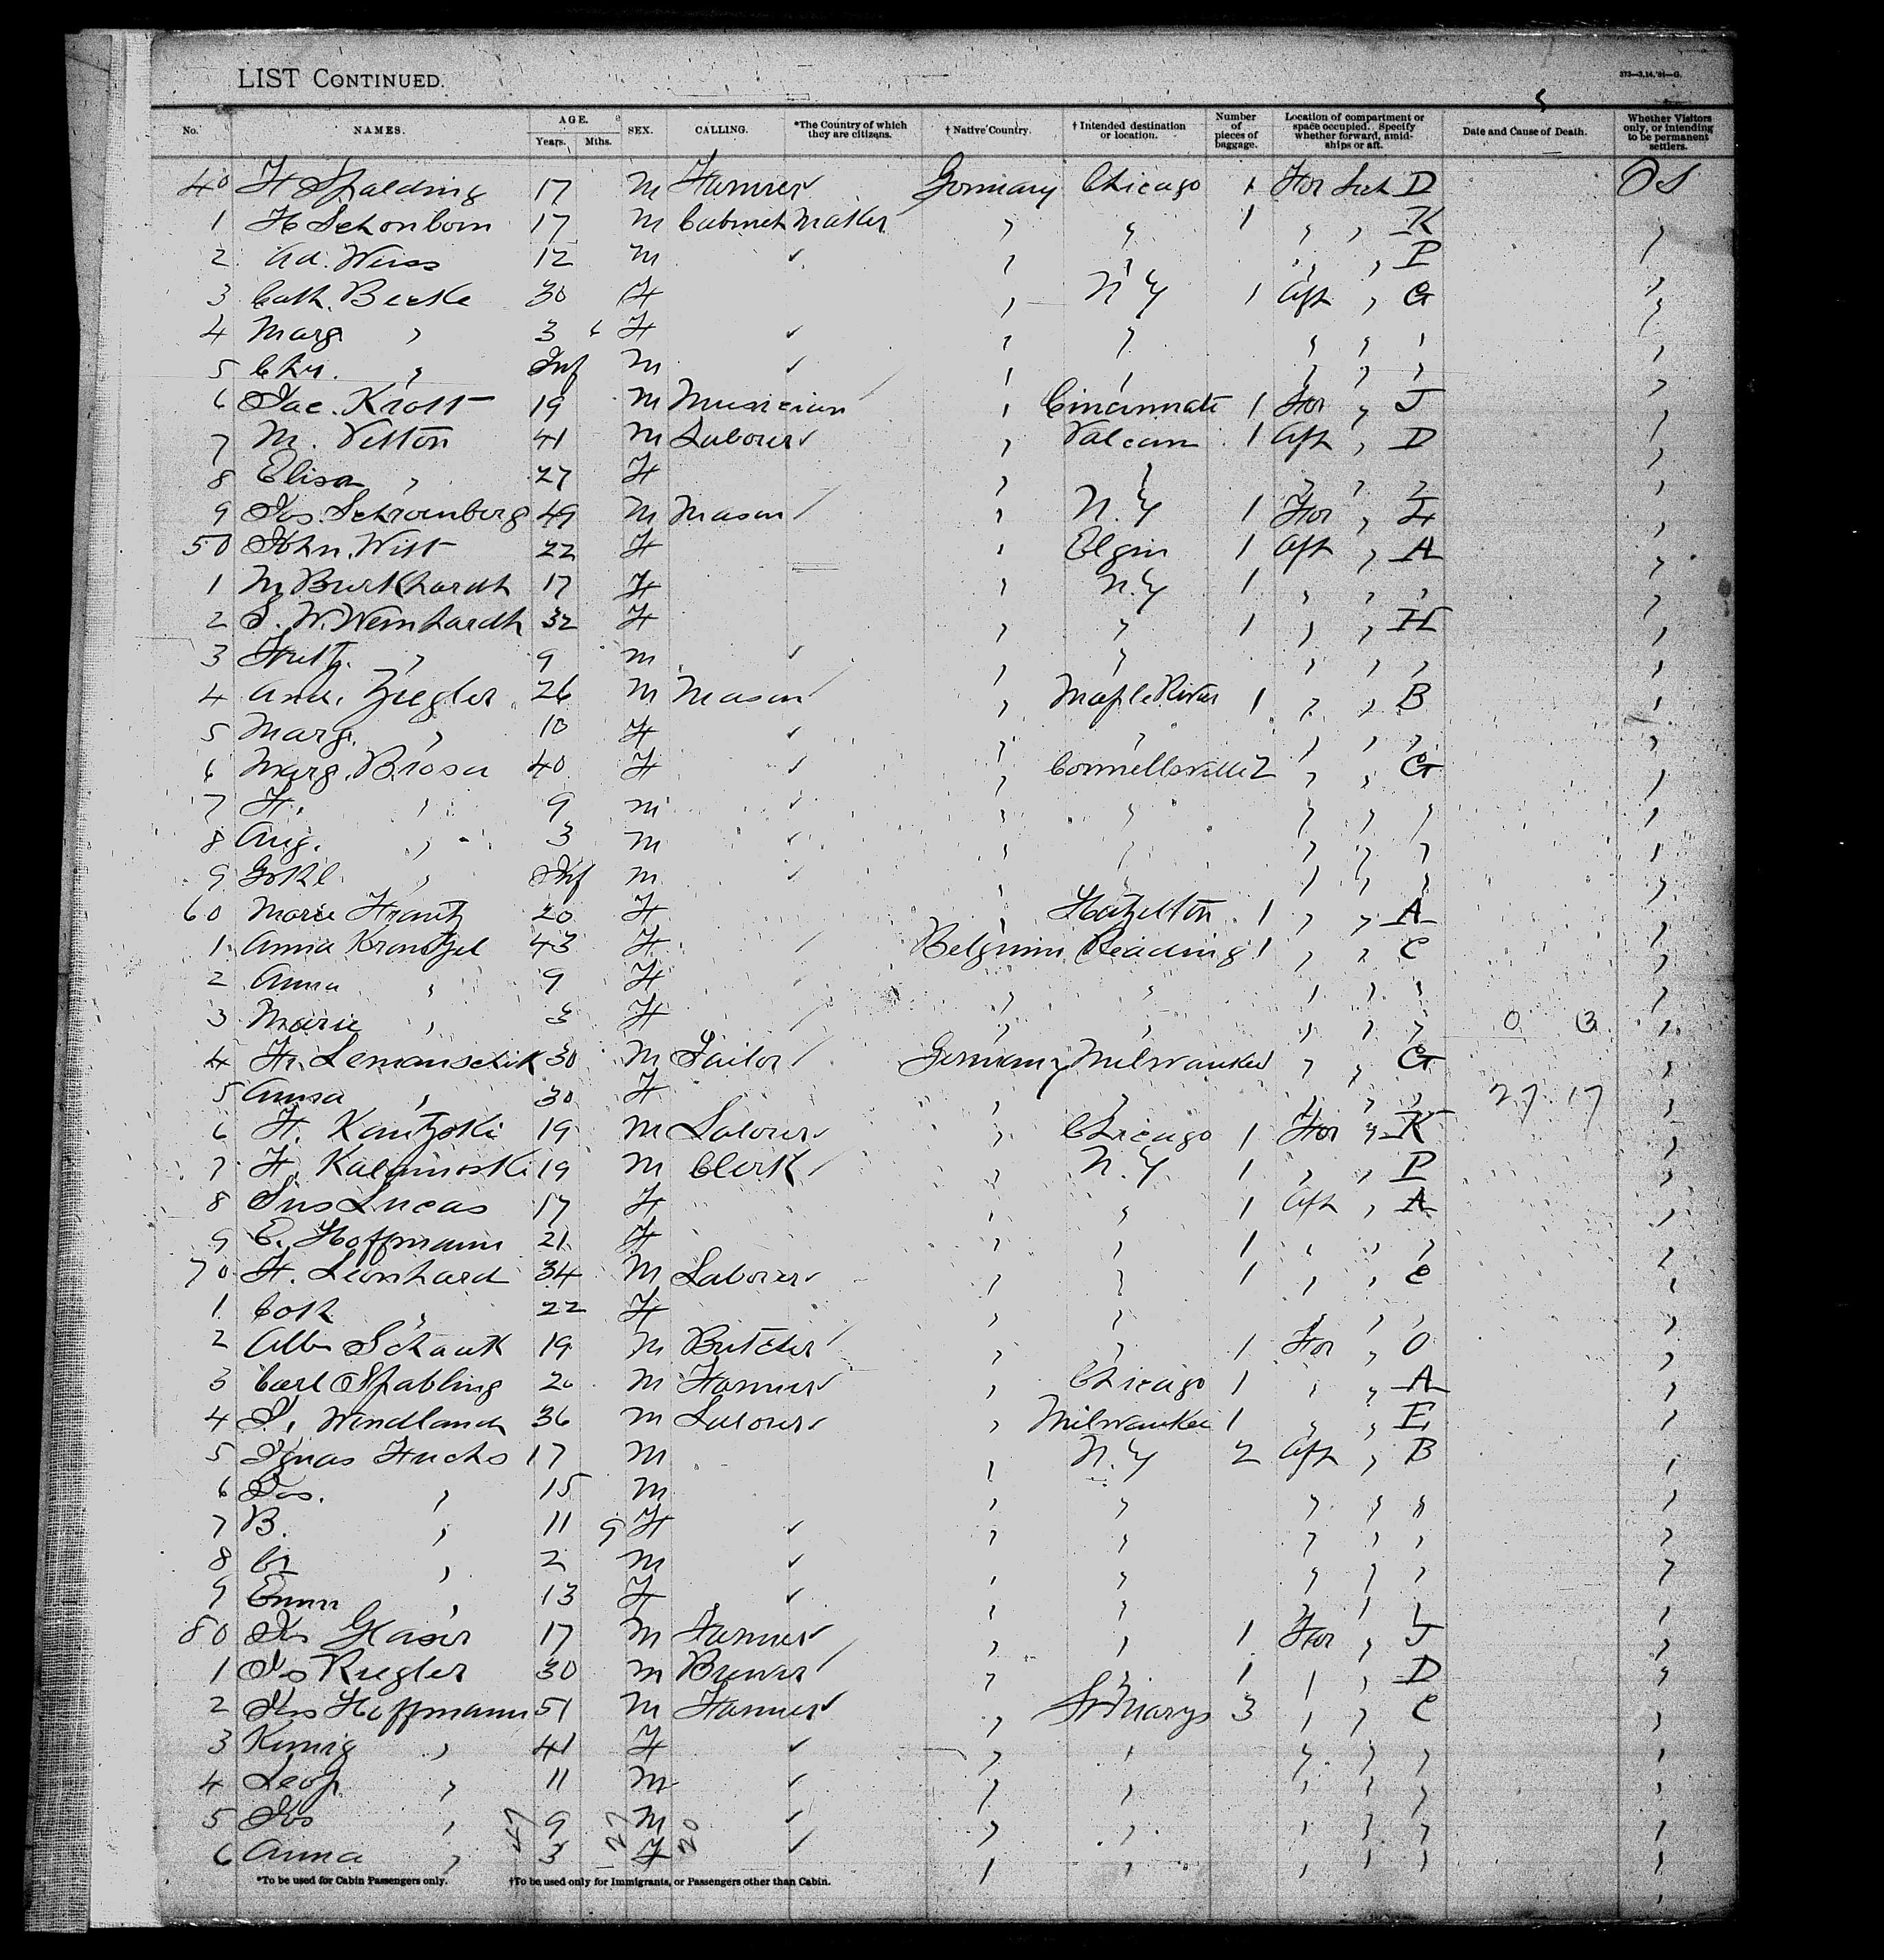 LIST CONTINUED.
373—3,14,'91—G.
No. NAMES. AGE. Years. Mths. SEX. CALLING. *The Country of which they are citizens. † Native Country. † Intended destination or location. Number of pieces of baggage. Location of compartment or space occupied. Specify whether forward, amidships or aft. Date and Cause of Death. Whether Visitors only, or intending to be permanent settlers.
40 H Spalding 17 M Farmer ✓ Germany Chicago 1 For Sect D
1 H Schonborn 17 M Cabinet Maker " " 1 " " K
2 Ad. Weiss 12 M ✓ " " " " P
3 Cath. Beeke 30 F " N Y 1 Aft " G
4 Marg " 3 6 F ✓ " " " " "
5 Chr. " Inf M ✓ " " " " "
6 Jac. Krott 19 M Musician " Cincinnati 1 For " J
7 M. Vetton 41 M Labourer ✓ " Valcan 1 Aft " D
8 Elisa " 27 F " " " " "
9 Jos. Schromberg 49 M Mason " N.Y 1 For " F
50 John. Witt 22 F " Elgin 1 Aft " A
1 M Burkhardt 17 F " N.Y 1 " " "
2 S. W. Weinhardt 32 F " " 1 " " H
3 " 9 M ✓ " " " " "
4 And. Ziegler 26 M Mason " Maple River 1 " " B
5 Marg. " 10 F ✓ " " " " "
6 Marg. Brosa 40 F ✓ " Connellsville 2 " " G
7 F. " 9 M ✓ " " " " "
8 Aug. " 3 M ✓ " " " " "
9 " Inf M ✓ " " " " "
60 Marie Frantz 20 F " Hatzelton 1 " " A
1 Anna Krantzel 43 F Belgium Reading 1 " " C
2 Anna " 9 F " " " " "
3 Marie " 3 F " " " " " 0 3
4 Fr. Lemanschik 30 M Tailor Germany Milwaukee " " G
5 Anna " 30 F " " " " " 27 17
6 F. Kantzski 19 M Labourer ✓ " Chicago 1 For " K
7 F. Kalamoski 19 M Clerk " N.Y 1 " " P
8 Sus Lucas 17 F " " 1 Aft " A
9 E. Hoffmann 21 F " " 1 " " "
70 F. Leonhard 34 M Laborer ✓ " " 1 " " C
1 Cath " 22 F " " " " "
2 Alb. Schauk 19 M Butcher " " 1 For " O
3 Carl Spabling 20 M Farmer ✓ " Chicago 1 " " A
4 Windland 36 M Labourer ✓ " Milwaukee 1 " " E
5 Ignas Fuchs 17 M " N.Y 2 Aft " B
6 Jos. " 15 M " " " " "
7 B. " 11 9 F ✓ " " " " "
8 " 2 M ✓ " " " " "
9 Emma " 13 F ✓ " " " " "
80 Jos Glaser 17 M Farmer ✓ " " 1 For " J
1 Jos Riegler 30 M Brewer " " 1 " " D
2 Jos Hoffmann 51 M Farmer ✓ " St Marys 3 " " C
3 " 41 F ✓ " " " " "
4 Leop. " 11 M ✓ " " " " "
5 Jos " 9 M ✓ " " " " "
6 Anna " 3 F ✓ " " " " "
47 27 20
*To be used for Cabin Passengers only. †To be used only for Immigrants, or Passengers other than Cabin.